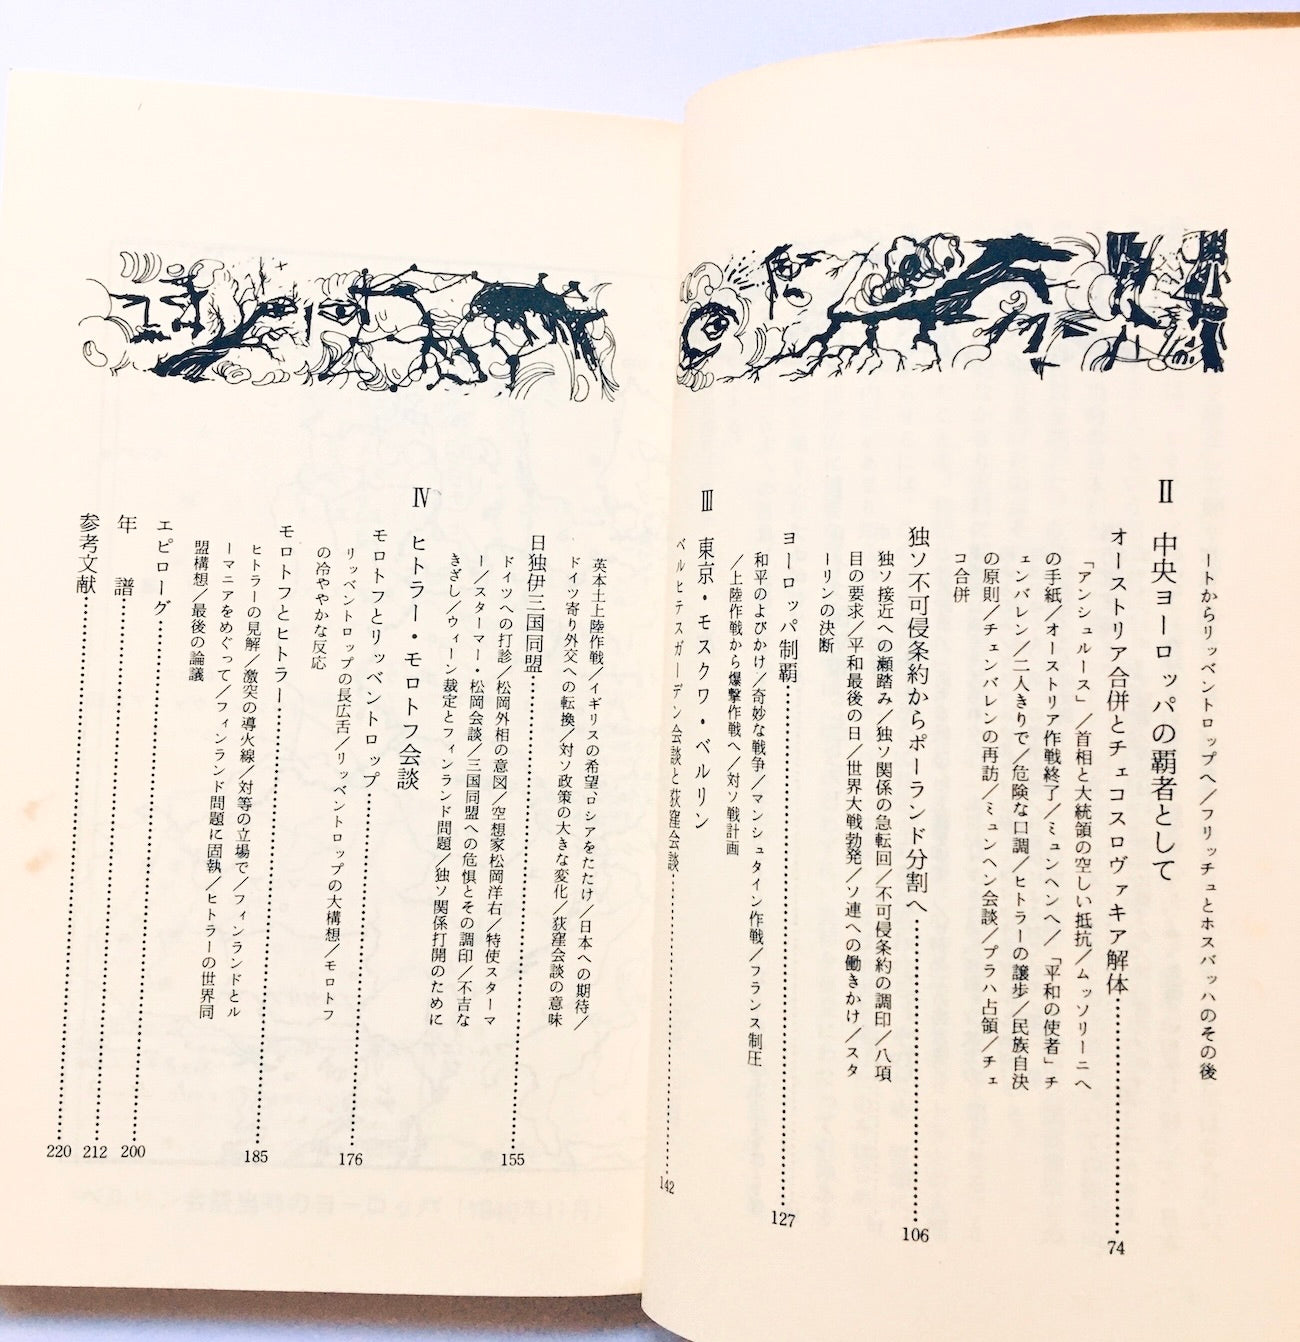 ートからリッベントロップへ／フリッチュとホスバッハのその後
Ⅱ 中央ヨーロッパの覇者として
オーストリア合併とチェコスロヴァキア解体……………………74
「アンシュルース」／首相と大統領の空しい抵抗／ムッソリーニへ
の手紙／オーストリア作戦終了／ミュンヘンへ／「平和の使者」チ
ェンバレン／二人きりで／危険な口調／ヒトラーの譲歩／民族自決
の原則／チェンバレンの再訪／ミュンヘン会談／プラハ占領／チェ
コ合併
独ソ不可侵条約からポーランド分割へ……………………106
独ソ接近への瀬踏み／独ソ関係の急転回／不可侵条約の調印／八項
目の要求／平和最後の日／世界大戦勃発／ソ連への働きかけ／スタ
ーリンの決断
ヨーロッパ制覇……………………127
和平のよびかけ／奇妙な戦争／マンシュタイン作戦／フランス制圧
／上陸作戦から爆撃作戦へ／対ソ戦計画
Ⅲ 東京・モスクワ・ベルリン
ベルヒテスガーデン会談と荻窪会談……………………142
英本土上陸作戦／イギリスの希望、ロシアをたたけ／日本への期待／
ドイツ寄り外交への転換／対ソ政策の大きな変化／荻窪会談の意味
日独伊三国同盟……………………155
ドイツへの打診／松岡外相の意図／空想家松岡洋右／特使スターマ
ー／スターマー・松岡会談／三国同盟への危惧とその調印／不吉な
きざし／ウィーン裁定とフィンランド問題／独ソ関係打開のために
Ⅳ ヒトラー・モロトフ会談
モロトフとリッベントロップ……………………176
リッベントロップの長広舌／リッベントロップの大構想／モロトフ
の冷ややかな反応
モロトフとヒトラー……………………185
ヒトラーの見解／激突の導火線／対等の立場で／フィンランドとル
ーマニアをめぐって／フィンランド問題に固執／ヒトラーの世界同
盟構想／最後の論議
エピローグ……………………200
年 譜……………………212
参考文献……………………220